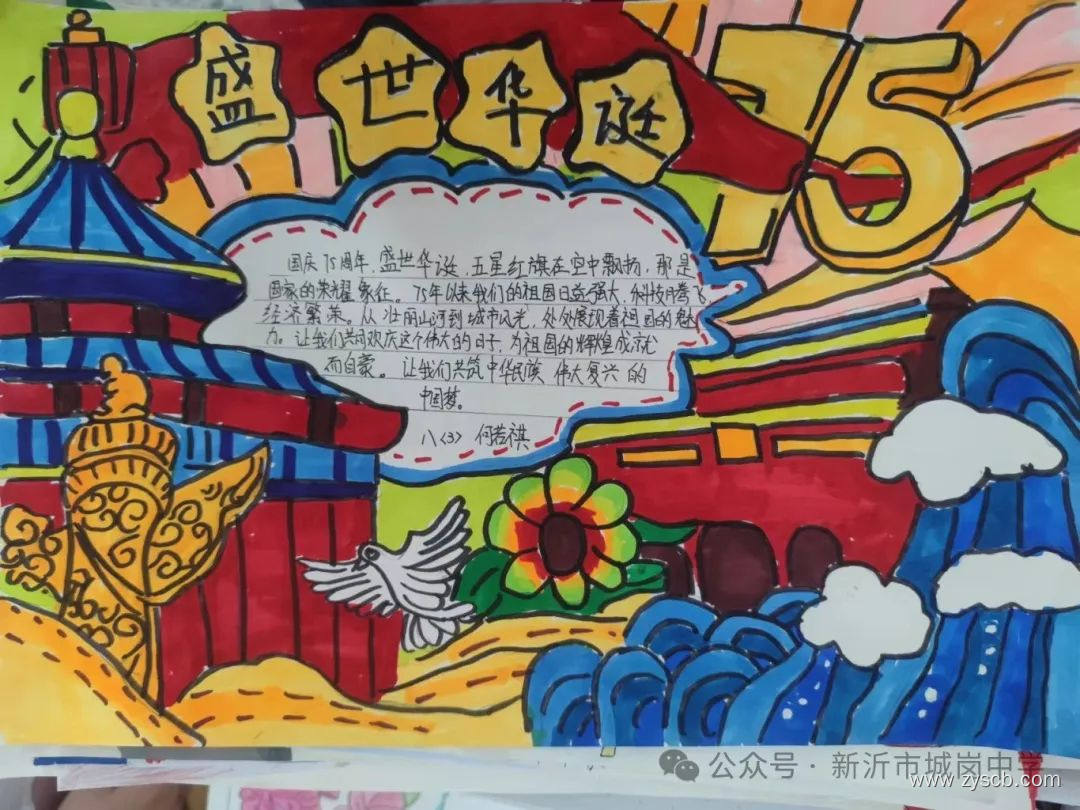 盛世华诞
75
国庆75周年,盛世华诞,五星红旗在空中飘扬,那是
国家的荣耀象征。75年以来我们的祖国日益强大,科技腾飞
经济繁荣。从壮丽山河到城市风光,处处展现着祖国的魅
力。让我们共同欢庆这个伟大的日子,为祖国的辉煌成就
而自豪。让我们共筑中华民族伟大复兴的
中国梦。
八<3> 何若祺
公众号·新沂市城岗中学
www.zyscb.com